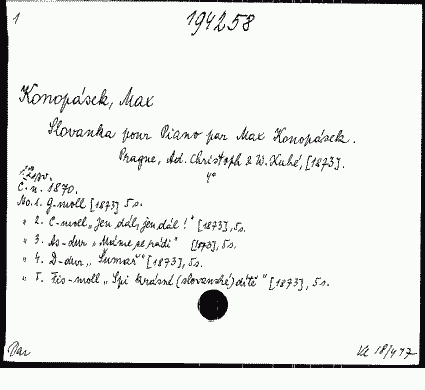 1 194258
Konopásek, Max
Slovanka pour Piano par Max Konopásek.
Prague, Ad. Christoph & W. Kuhé, [1873].
4°
Č. n. 1870.
No. 1. G-moll [1873] 5 s.
" 2. C-moll „Jen dál, jen dál!" [1873], 5 s.
" 3. As-dur „Máme se rádi" [1873], 5 s.
" 4. D-dur „Šumař" [1873], 5 s.
" 5. Fis-moll „Spi krásné (slovanské) dítě" [1873], 5 s.
Dar Vá 18/477